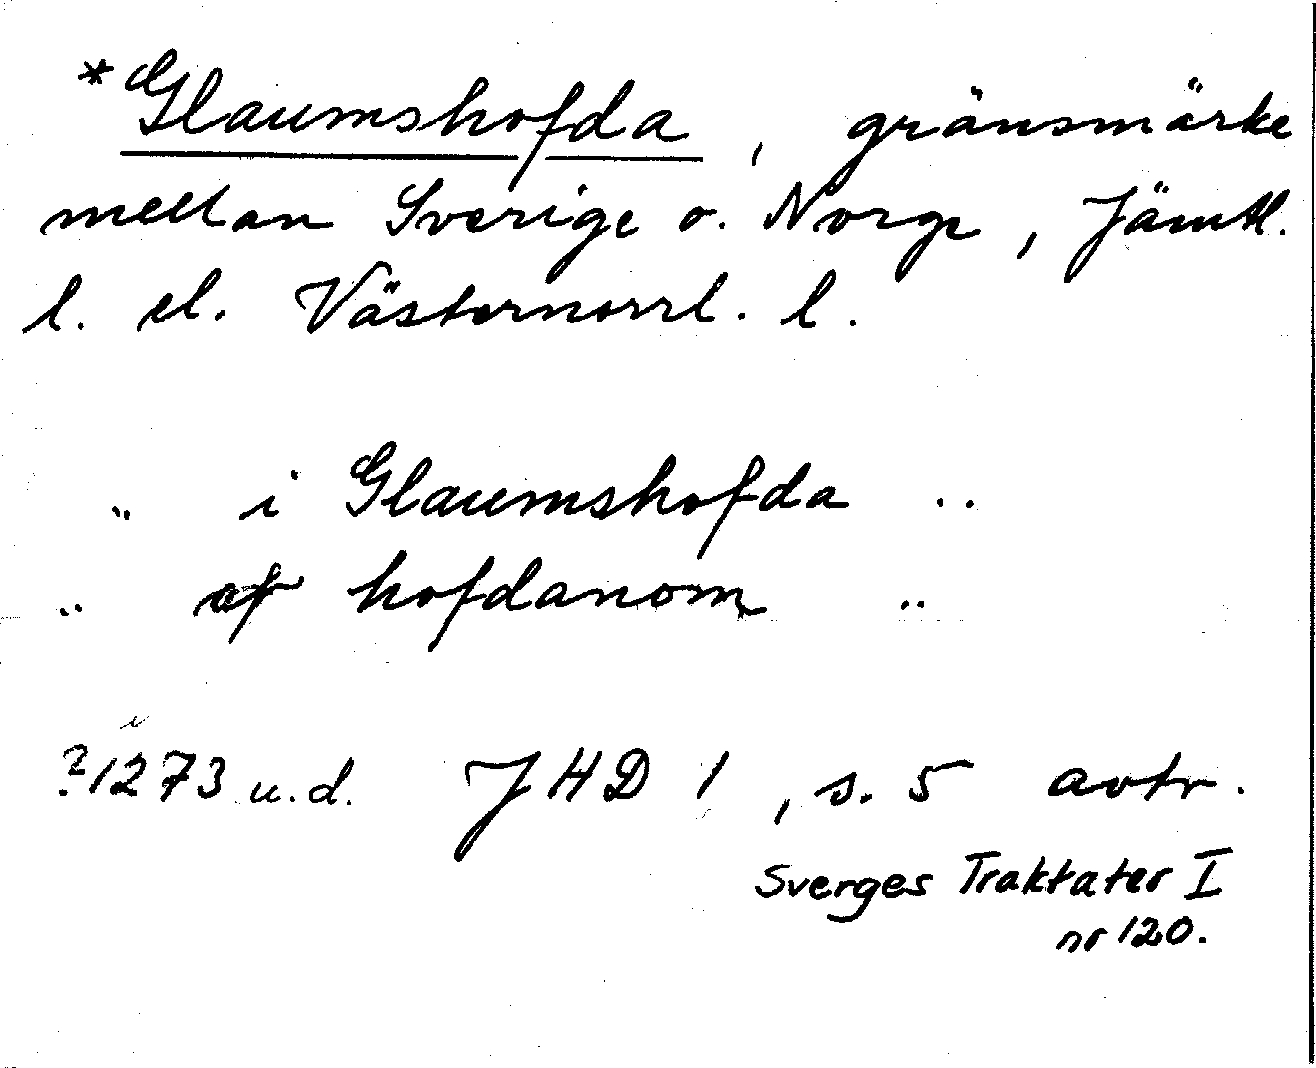 *Glaumshofda, gränsmärke
mellan Sverige o. Norge, Jämtl.
l. el. Västernorrl. l.
.. i Glaumshofda ..
.. af hofdanom ..
?1273 u.d. JHD 1, s. 5 avtr.
Sverges Traktater I
nr 120.